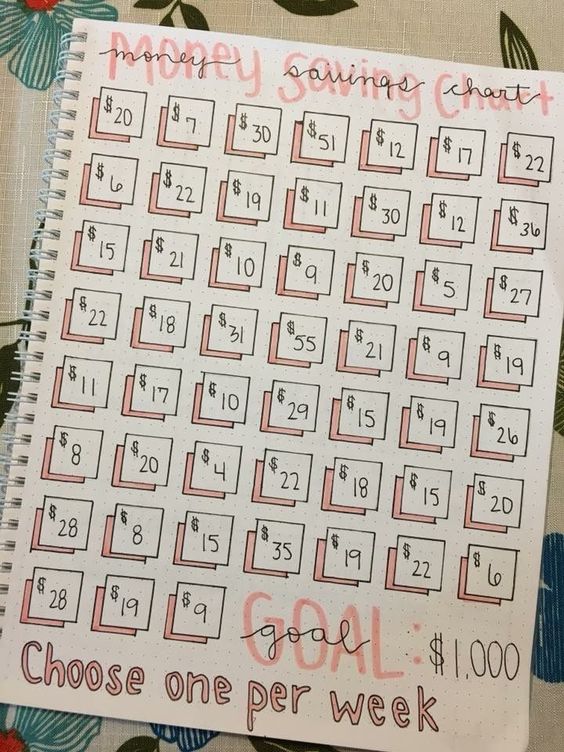 Money Saving Chart
money savings chart
$20 $7 $30 $51 $12 $17 $22
$6 $22 $19 $11 $30 $12 $36
$15 $21 $10 $9 $20 $5 $27
$22 $18 $31 $55 $21 $9 $19
$11 $17 $10 $29 $15 $19 $26
$8 $20 $4 $22 $18 $15 $20
$28 $8 $15 $35 $19 $22 $6
$28 $19 $9
GOAL:
goal
$1,000
Choose one per week